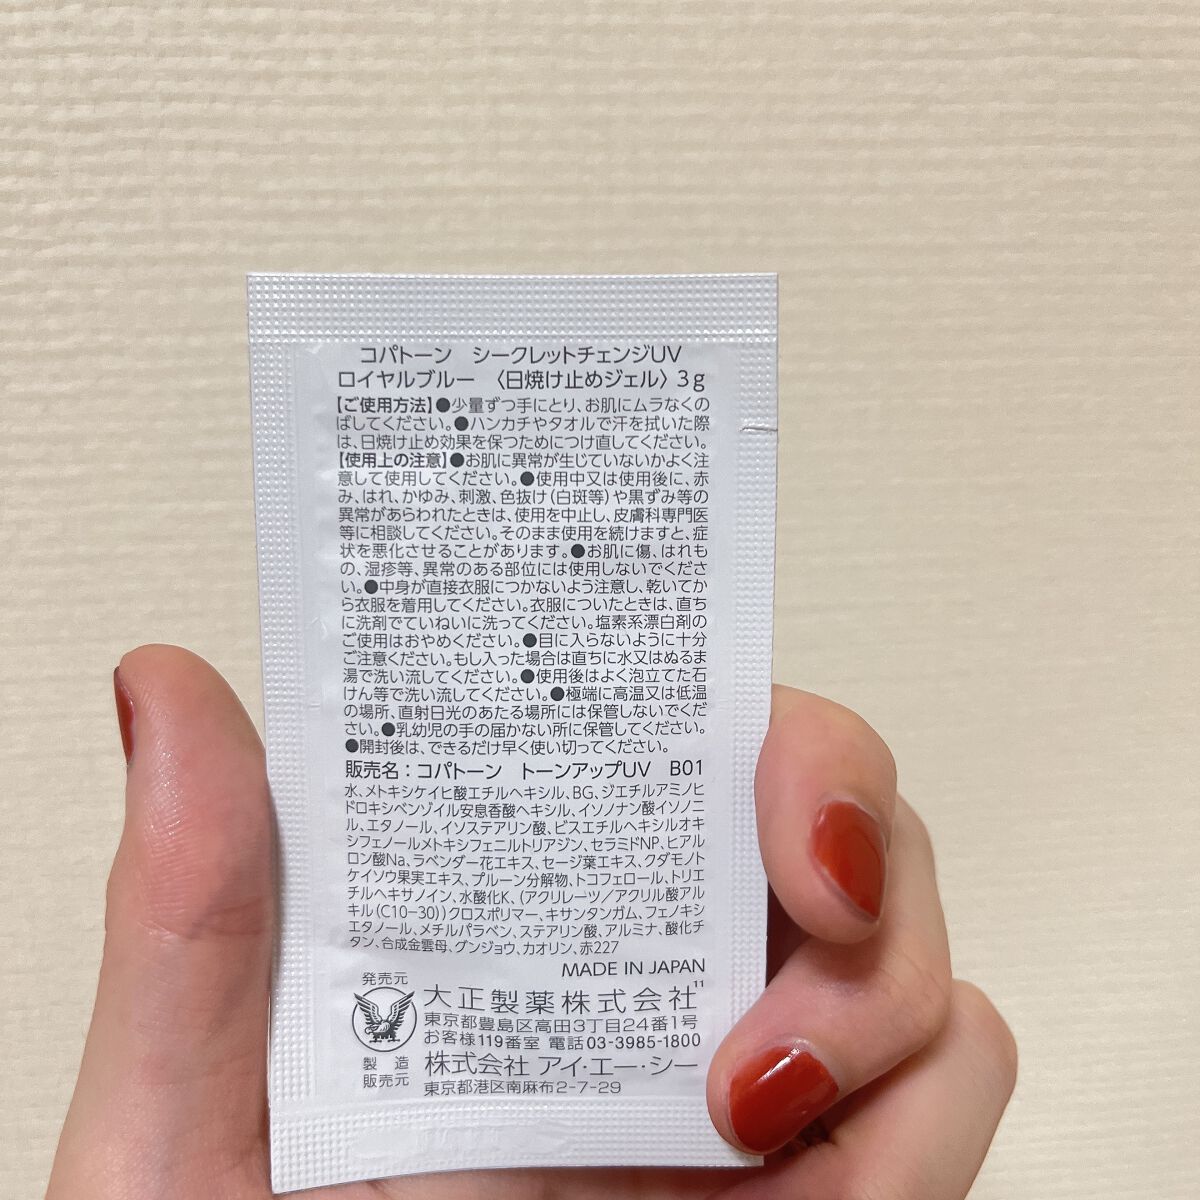 コパトーン　シークレットチェンジUV
ロイヤルブルー　〈日焼け止めジェル〉3g
【ご使用方法】●少量ずつ手にとり、お肌にムラなくの
ばしてください。●ハンカチやタオルで汗を拭いた際
は、日焼け止め効果を保つためにつけ直してください。
【使用上の注意】●お肌に異常が生じていないかよく注
意して使用してください。●使用中又は使用後に、赤
み、はれ、かゆみ、刺激、色抜け(白斑等)や黒ずみ等の
異常があらわれたときは、使用を中止し、皮膚科専門医
等に相談してください。そのまま使用を続けますと、症
状を悪化させることがあります。●お肌に傷、はれも
の、湿疹等、異常のある部位には使用しないでくださ
い。●中身が直接衣服につかないよう注意し、乾いてか
ら衣服を着用してください。衣服についたときは、直ち
に洗剤でていねいに洗ってください。塩素系漂白剤の
ご使用はおやめください。●目に入らないように十分
ご注意ください。もし入った場合は直ちに水又はぬるま
湯で洗い流してください。●使用後はよく泡立てた石
けん等で洗い流してください。●極端に高温又は低温
の場所、直射日光のあたる場所には保管しないでくだ
さい。●乳幼児の手の届かない所に保管してください。
●開封後は、できるだけ早く使い切ってください。
販売名：コパトーン　トーンアップUV　B01
水、メトキシケイヒ酸エチルヘキシル、BG、ジエチルアミノヒ
ドロキシベンゾイル安息香酸ヘキシル、イソノナン酸イソノニ
ル、エタノール、イソステアリン酸、ビスエチルヘキシルオキ
シフェノールメトキシフェニルトリアジン、セラミドNP、ヒアル
ロン酸Na、ラベンダー花エキス、セージ葉エキス、クダモノト
ケイソウ果実エキス、プルーン分解物、トコフェロール、トリエ
チルヘキサノイン、水酸化K、(アクリレーツ／アクリル酸アル
キル(C10-30))クロスポリマー、キサンタンガム、フェノキシ
エタノール、メチルパラベン、ステアリン酸、アルミナ、酸化チ
タン、合成金雲母、グンジョウ、カオリン、赤227
MADE IN JAPAN
発売元
大正製薬株式会社 11
東京都豊島区高田3丁目24番1号
お客様119番室 電話 03-3985-1800
製造
販売元
株式会社 アイ・エー・シー
東京都港区南麻布2-7-29